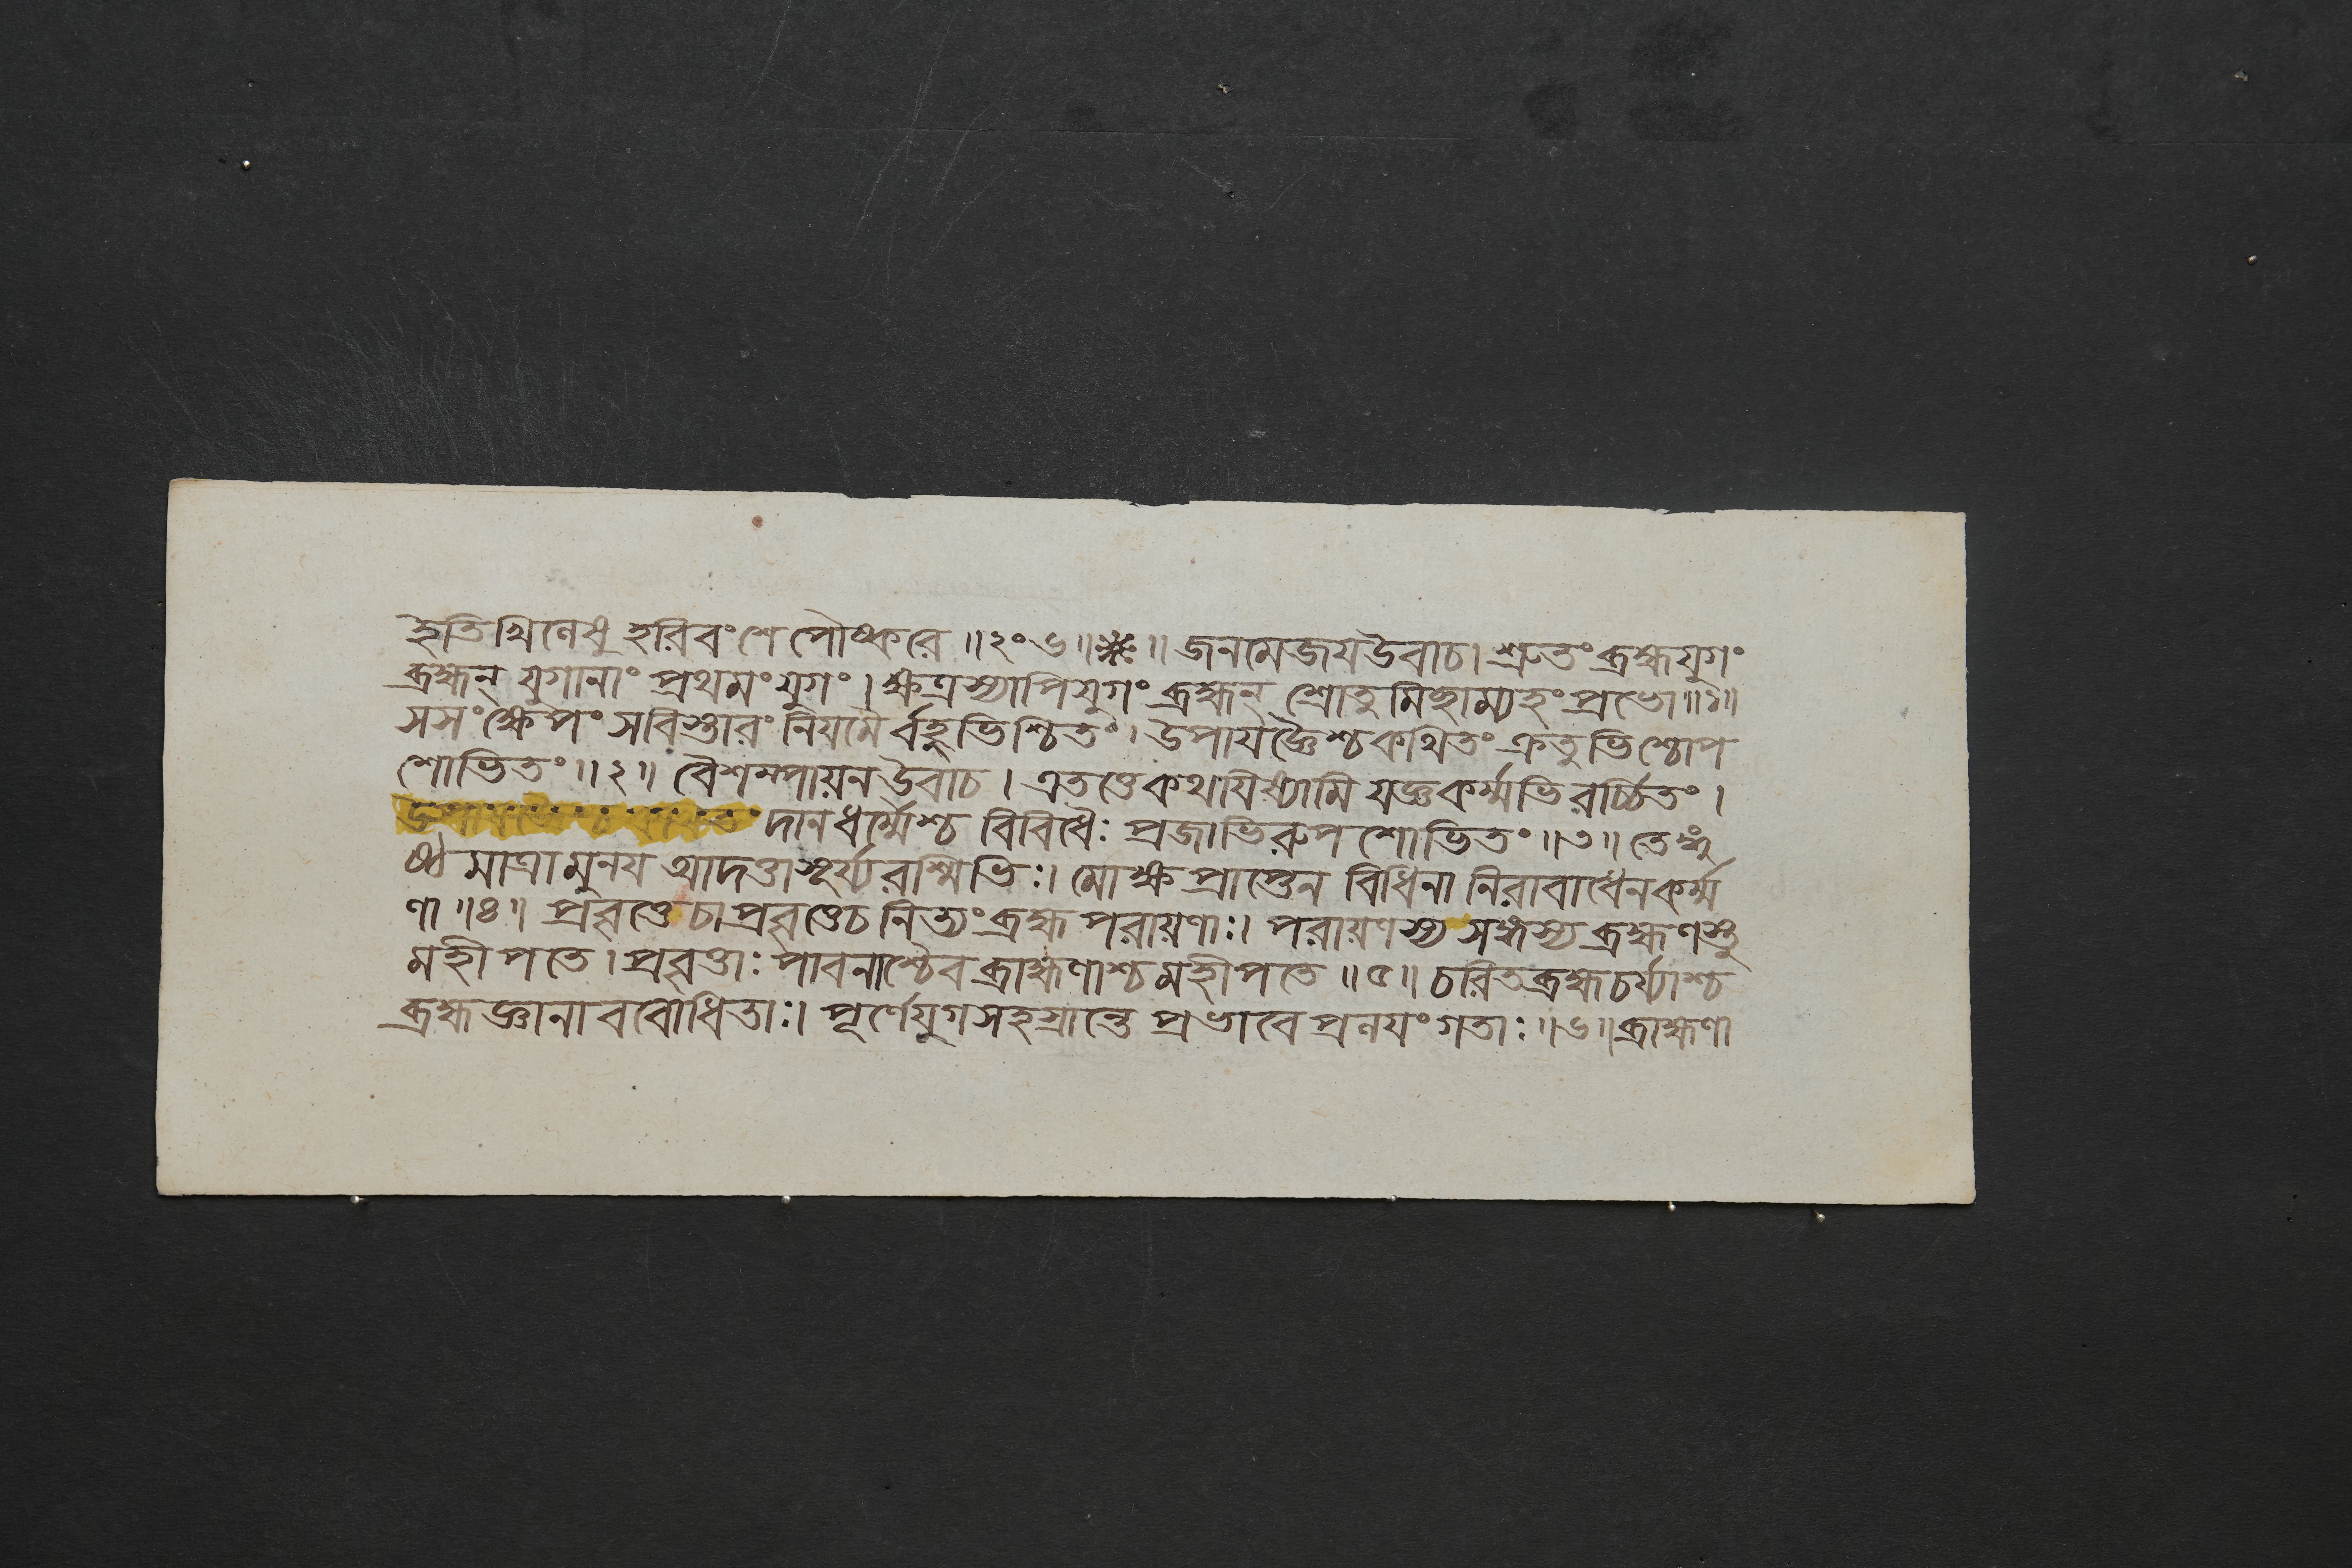 ইতি খিলেষু হরিবংশে পৌষ্করে ॥২০৬॥ ॥ জনমেজয উবাচ। শ্রুতং ব্রহ্মযুগং
ব্রহ্মন্ যুগানাং প্রথমং যুগং। ক্ষত্রস্যাপি যুগং ব্রহ্মন্ শ্রোতুমিছাম্যহং প্রভো॥১॥
সসংক্ষেপং সবিস্তারং নিযমৈর্বহুভিশ্চিতং। উপাযজ্ঞৈশ্চ কথিতং ক্রতুভিশ্চোপ
শোভিতং॥২॥ বৈশম্পায়ন উবাচ। এতত্তে কথযিষ্যামি যজ্ঞকর্ম্মভিরর্চ্চিতং।
দানধর্ম্মৈশ্চ বিবিধৈঃ প্রজাভিরুপশোভিতং॥৩॥ তেঙ্গু
ষ্ঠমাত্রা মুনয আদত্তাস্সূর্য্যরশ্মিভিঃ। মোক্ষপ্রাপ্তেন বিধিনা নিরাবাধেন কর্ম্ম
ণা॥৪॥ প্রবৃত্তে চাপ্রবৃত্তে চ নিত্যং ব্রহ্মপরায়ণাঃ। পরায়ণস্য সঙ্গস্য ব্রহ্মণস্তু
মহীপতে। প্রবৃত্তাঃ পাবনাশ্চৈব ব্রাহ্মণাশ্চ মহীপতে॥৫॥ চরিতব্রহ্মচর্য্যাশ্চ
ব্রহ্মজ্ঞানাববোধিতাঃ। পূর্ণে যুগসহস্রান্তে প্রভাবে প্রলযং গতাঃ॥৬॥ ব্রাহ্মণা